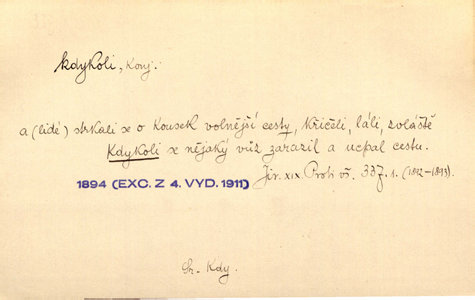 kdykoli, konj.
a (lidé) strkali se o kousek volnější cesty, křičeli, láli, zvláště
kdykoli se nějaký vůz zarazil a ucpal cestu.
1894 (EXC. Z 4. VYD. 1911)
Jir. XIX Proti vš. 337. 1. (1892–1893).
Kdy.